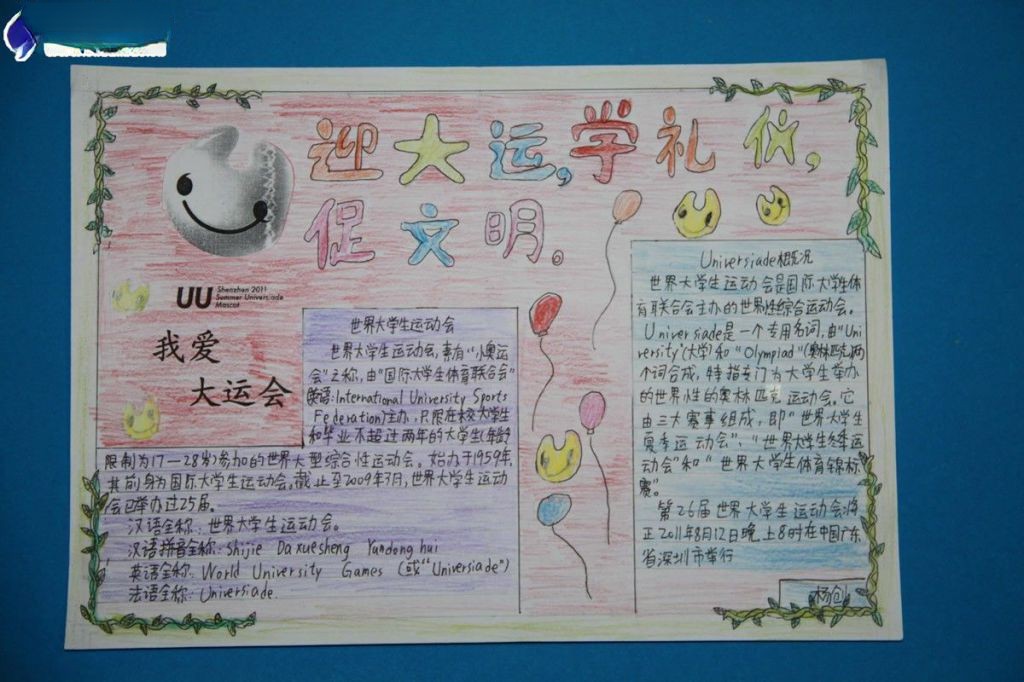 迎大运,学礼仪,
促文明。
UU Shenzhen 2011
Summer Universiade
Mascot
我爱
大运会
世界大学生运动会
世界大学生运动会,素有“小奥运
会”之称,由“国际大学生体育联合会”
英语:International University Sports
Federation)主办,只限在校大学生
和毕业不超过两年的大学生(年龄
限制为17—28岁)参加的世界大型综合性运动会。始办于1959年,
其前身为国际大学生运动会。截止至2009年3月,世界大学生运动
会已举办过25届。
汉语全称:世界大学生运动会。
汉语拼音全称:Shijie Daxuesheng Yundong hui
英语全称:World University Games (或“Universiade”)
法语全称:Universiade.
Universiade概况
世界大学生运动会是国际大学生体
育联合会主办的世界性综合运动会。
Universiade是一个专用名词,由“Uni
versity”(大学)和“Olympiad”(奥林匹克)两
个词合成,特指专门为大学生举办
的世界性的奥林匹克运动会。它
由三大赛事组成,即“世界大学生
夏季运动会”、“世界大学生冬季运
动会”和“世界大学生体育锦标
赛”。
第26届世界大学生运动会将
正2011年8月12日晚上8时在中国广东
省深圳市举行
杨创